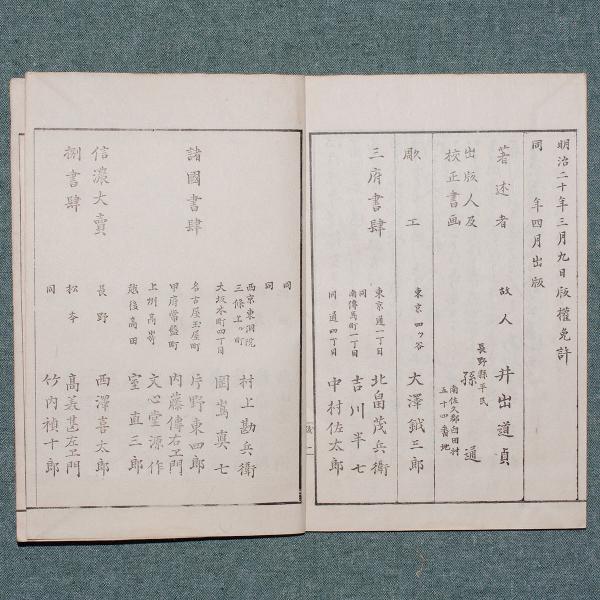 明治二十年三月九日版權免許
同 年四月出版
著述者 故人 井出道貞
出版人及
校正書画 長野縣平民 孫 通
南佐久郡臼田村
五十四番地
彫工 東京四ツ谷 大澤鉞三郎
三府書肆 東京通一丁目 北畠茂兵衛
同南傳馬町一丁目 吉川半七
同通四丁目 中村佐太郎
同
同
西京東洞院三條上ル町 村上勘兵衛
大坂本町四丁目 岡嶌真七
諸國書肆 名古屋玉屋町 片野東四郎
甲府常盤町 内藤傳右ヱ門
上州高嵜 文心堂源作
越後高田 室直三郎
信濃大賣 長野 西澤喜太郎
捌書肆 松本 高美甚左ヱ門
同 竹内禎十郎